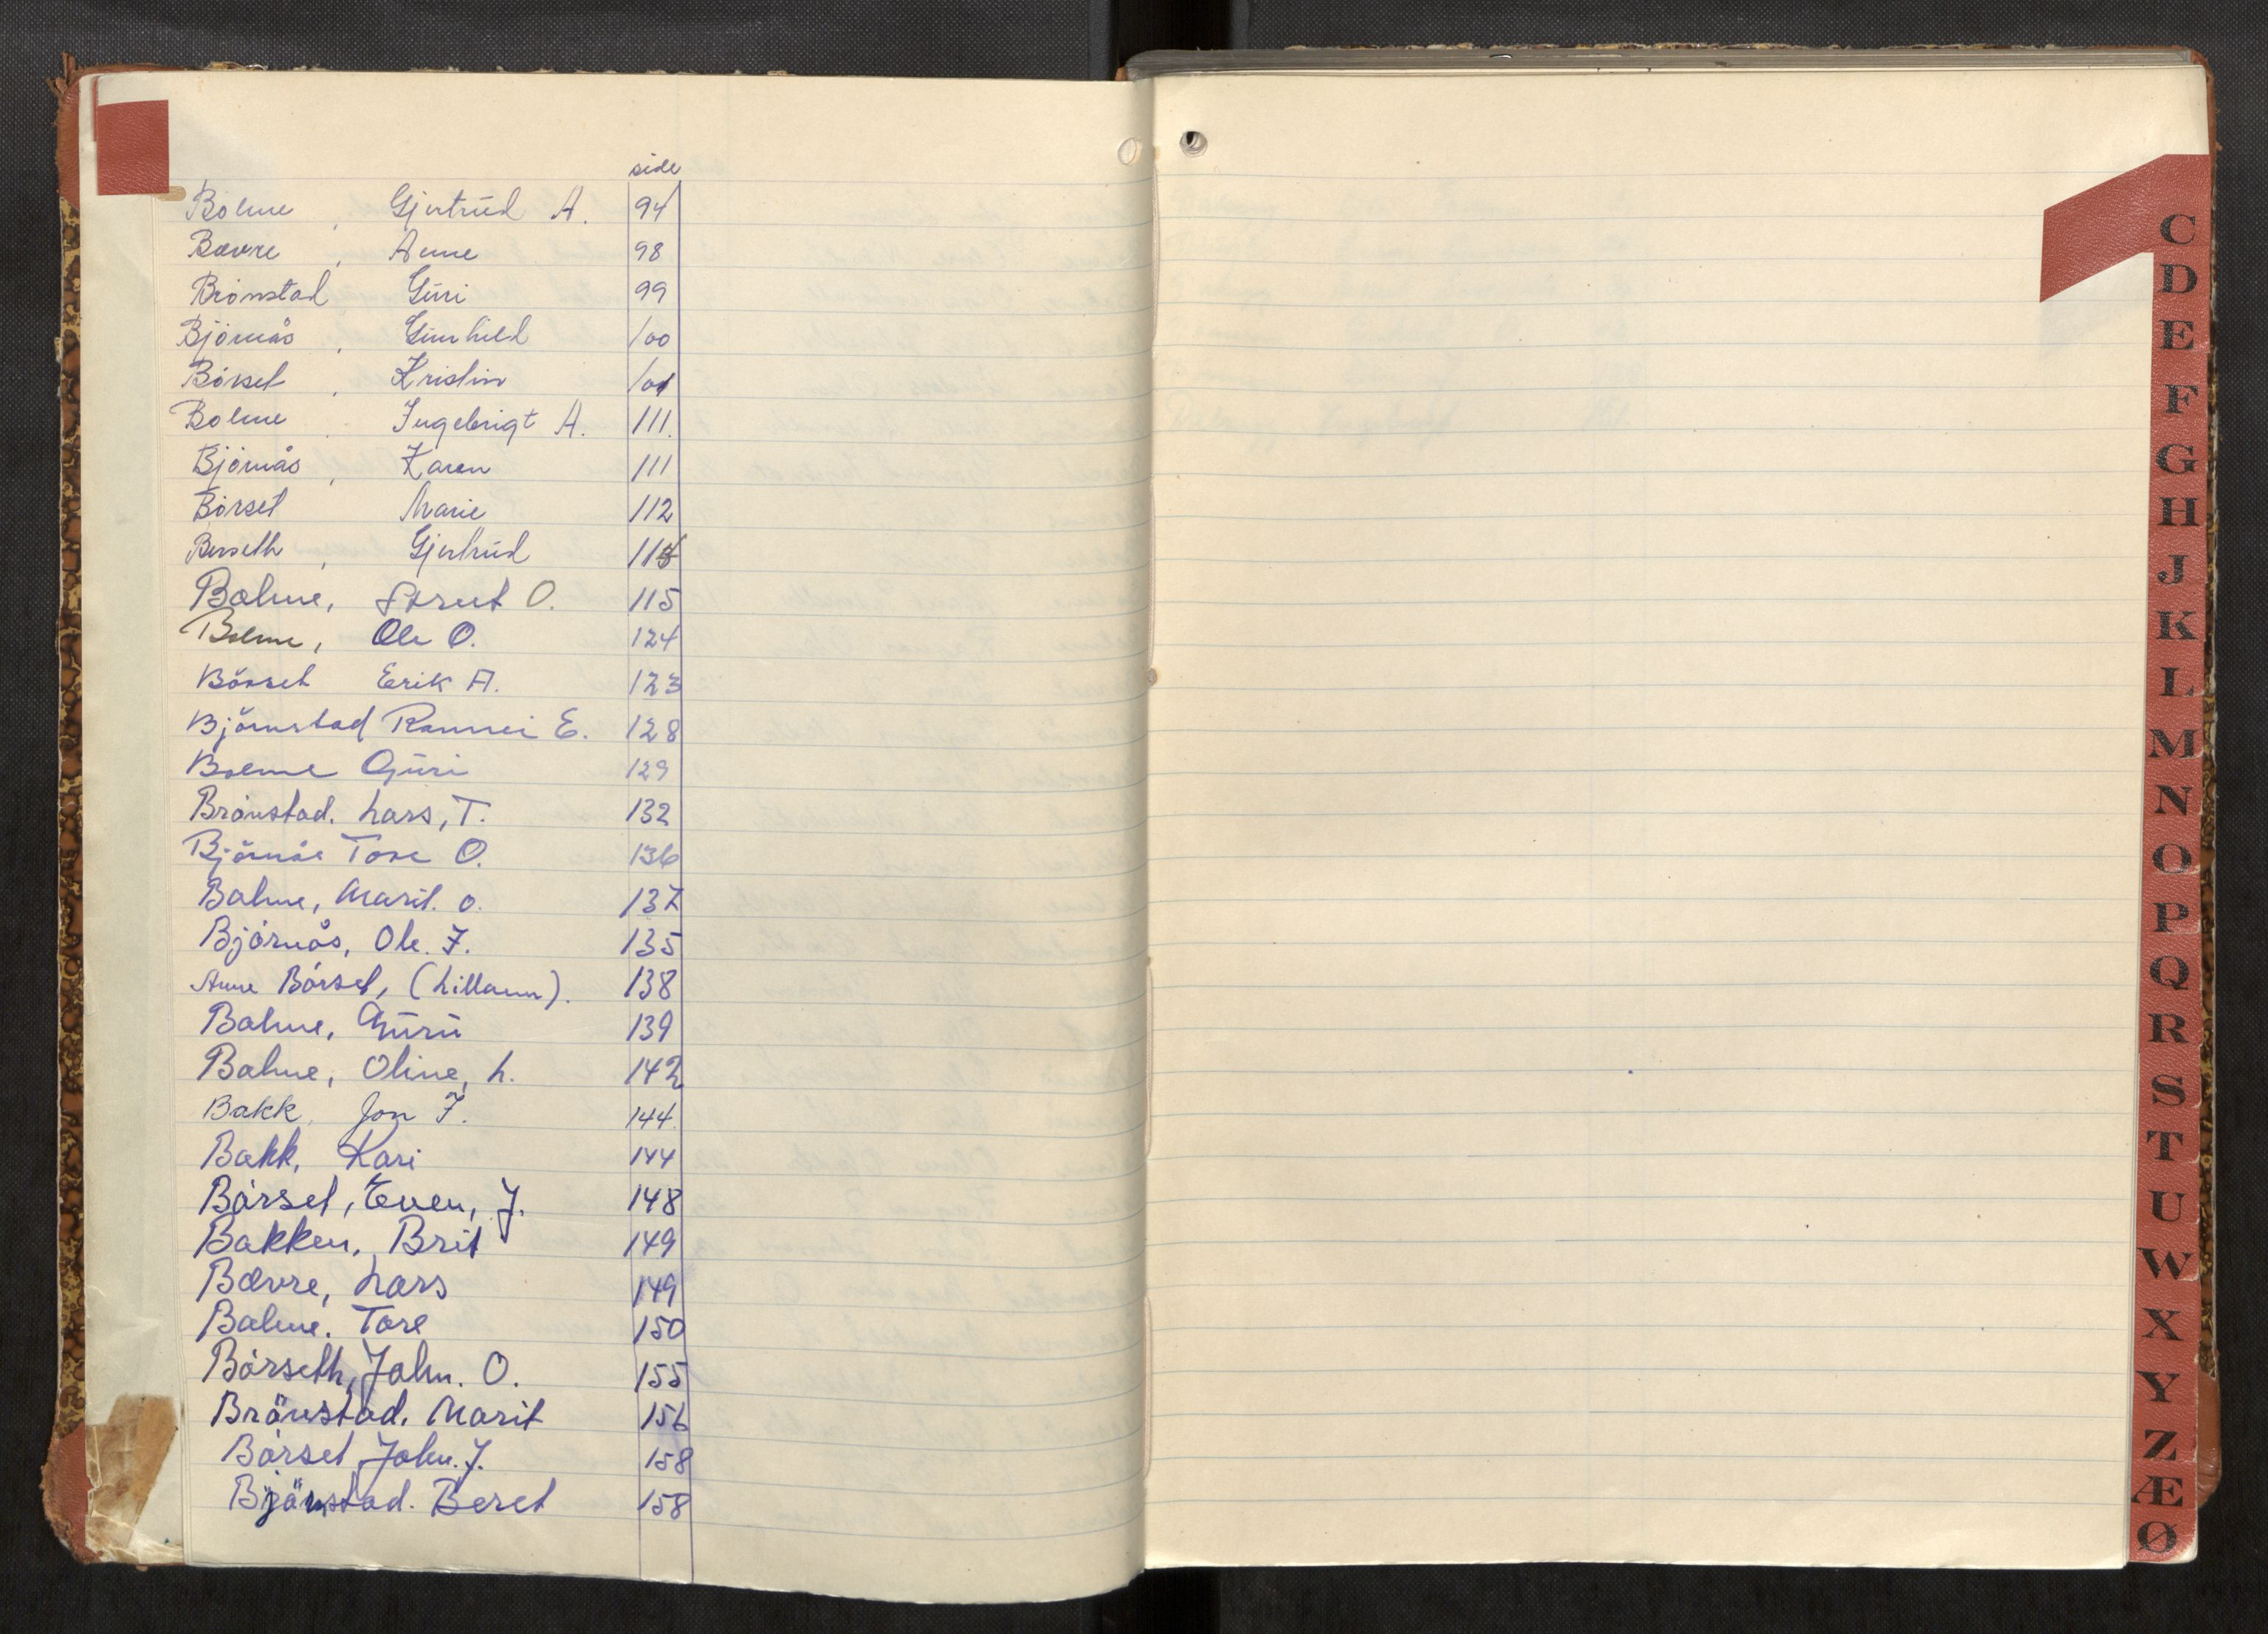 side
Bolme, Gjertrud A. 94
Bævre, Anne 98
Brönstad Guri 99
Björnås, Gunhild 100
Börset, Kristin 101
Bolme Ingebrigt A. 111.
Björnås, Karen 111
Börset Marie 112
Berseth, Gjertrud
Bolme, O. 115
Bolme, Ole O. 124
Börset Erik A. 123
Björnstad Rannei E. 128
Bolme Guri 129
Brönstad. Lars, T. 132
Björnås Tore O. 136
Bolme, Marit. O. 137
Björnås, Ole. J. 135
Anne Börset, (Lillaun). 138
Bolme, Guru 139
Bolme, Oline, L. 142
Bakk, Jon J. 144.
Bakk, Kari 144
Börset, Even, J. 148
Bakken, Brit 149
Bævre, Lars 149
Bolme. Tore 150
Börseth, John. O. 155
Brönstad. Marit 156
Börset, John. J. 158
Björnstad. Beret 158
C
D
E
F
G
H
J
K
L
M
N
O
P
Q
R
S
T
U
W
X
Y
Z
Æ
Ø